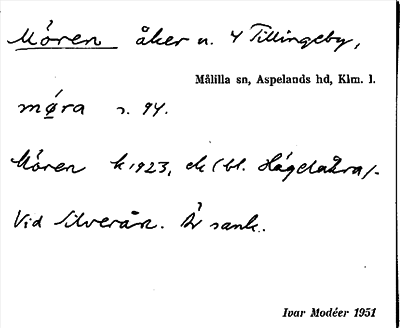 Mören åker n. 4 Tillingeby,
Målilla sn, Aspelands hd, Klm. l.
mǿra s. 94.
Mören k 1923, ek (bl. Högdaåra).
Vid Silverån. Är sank.
Ivar Modéer 1951